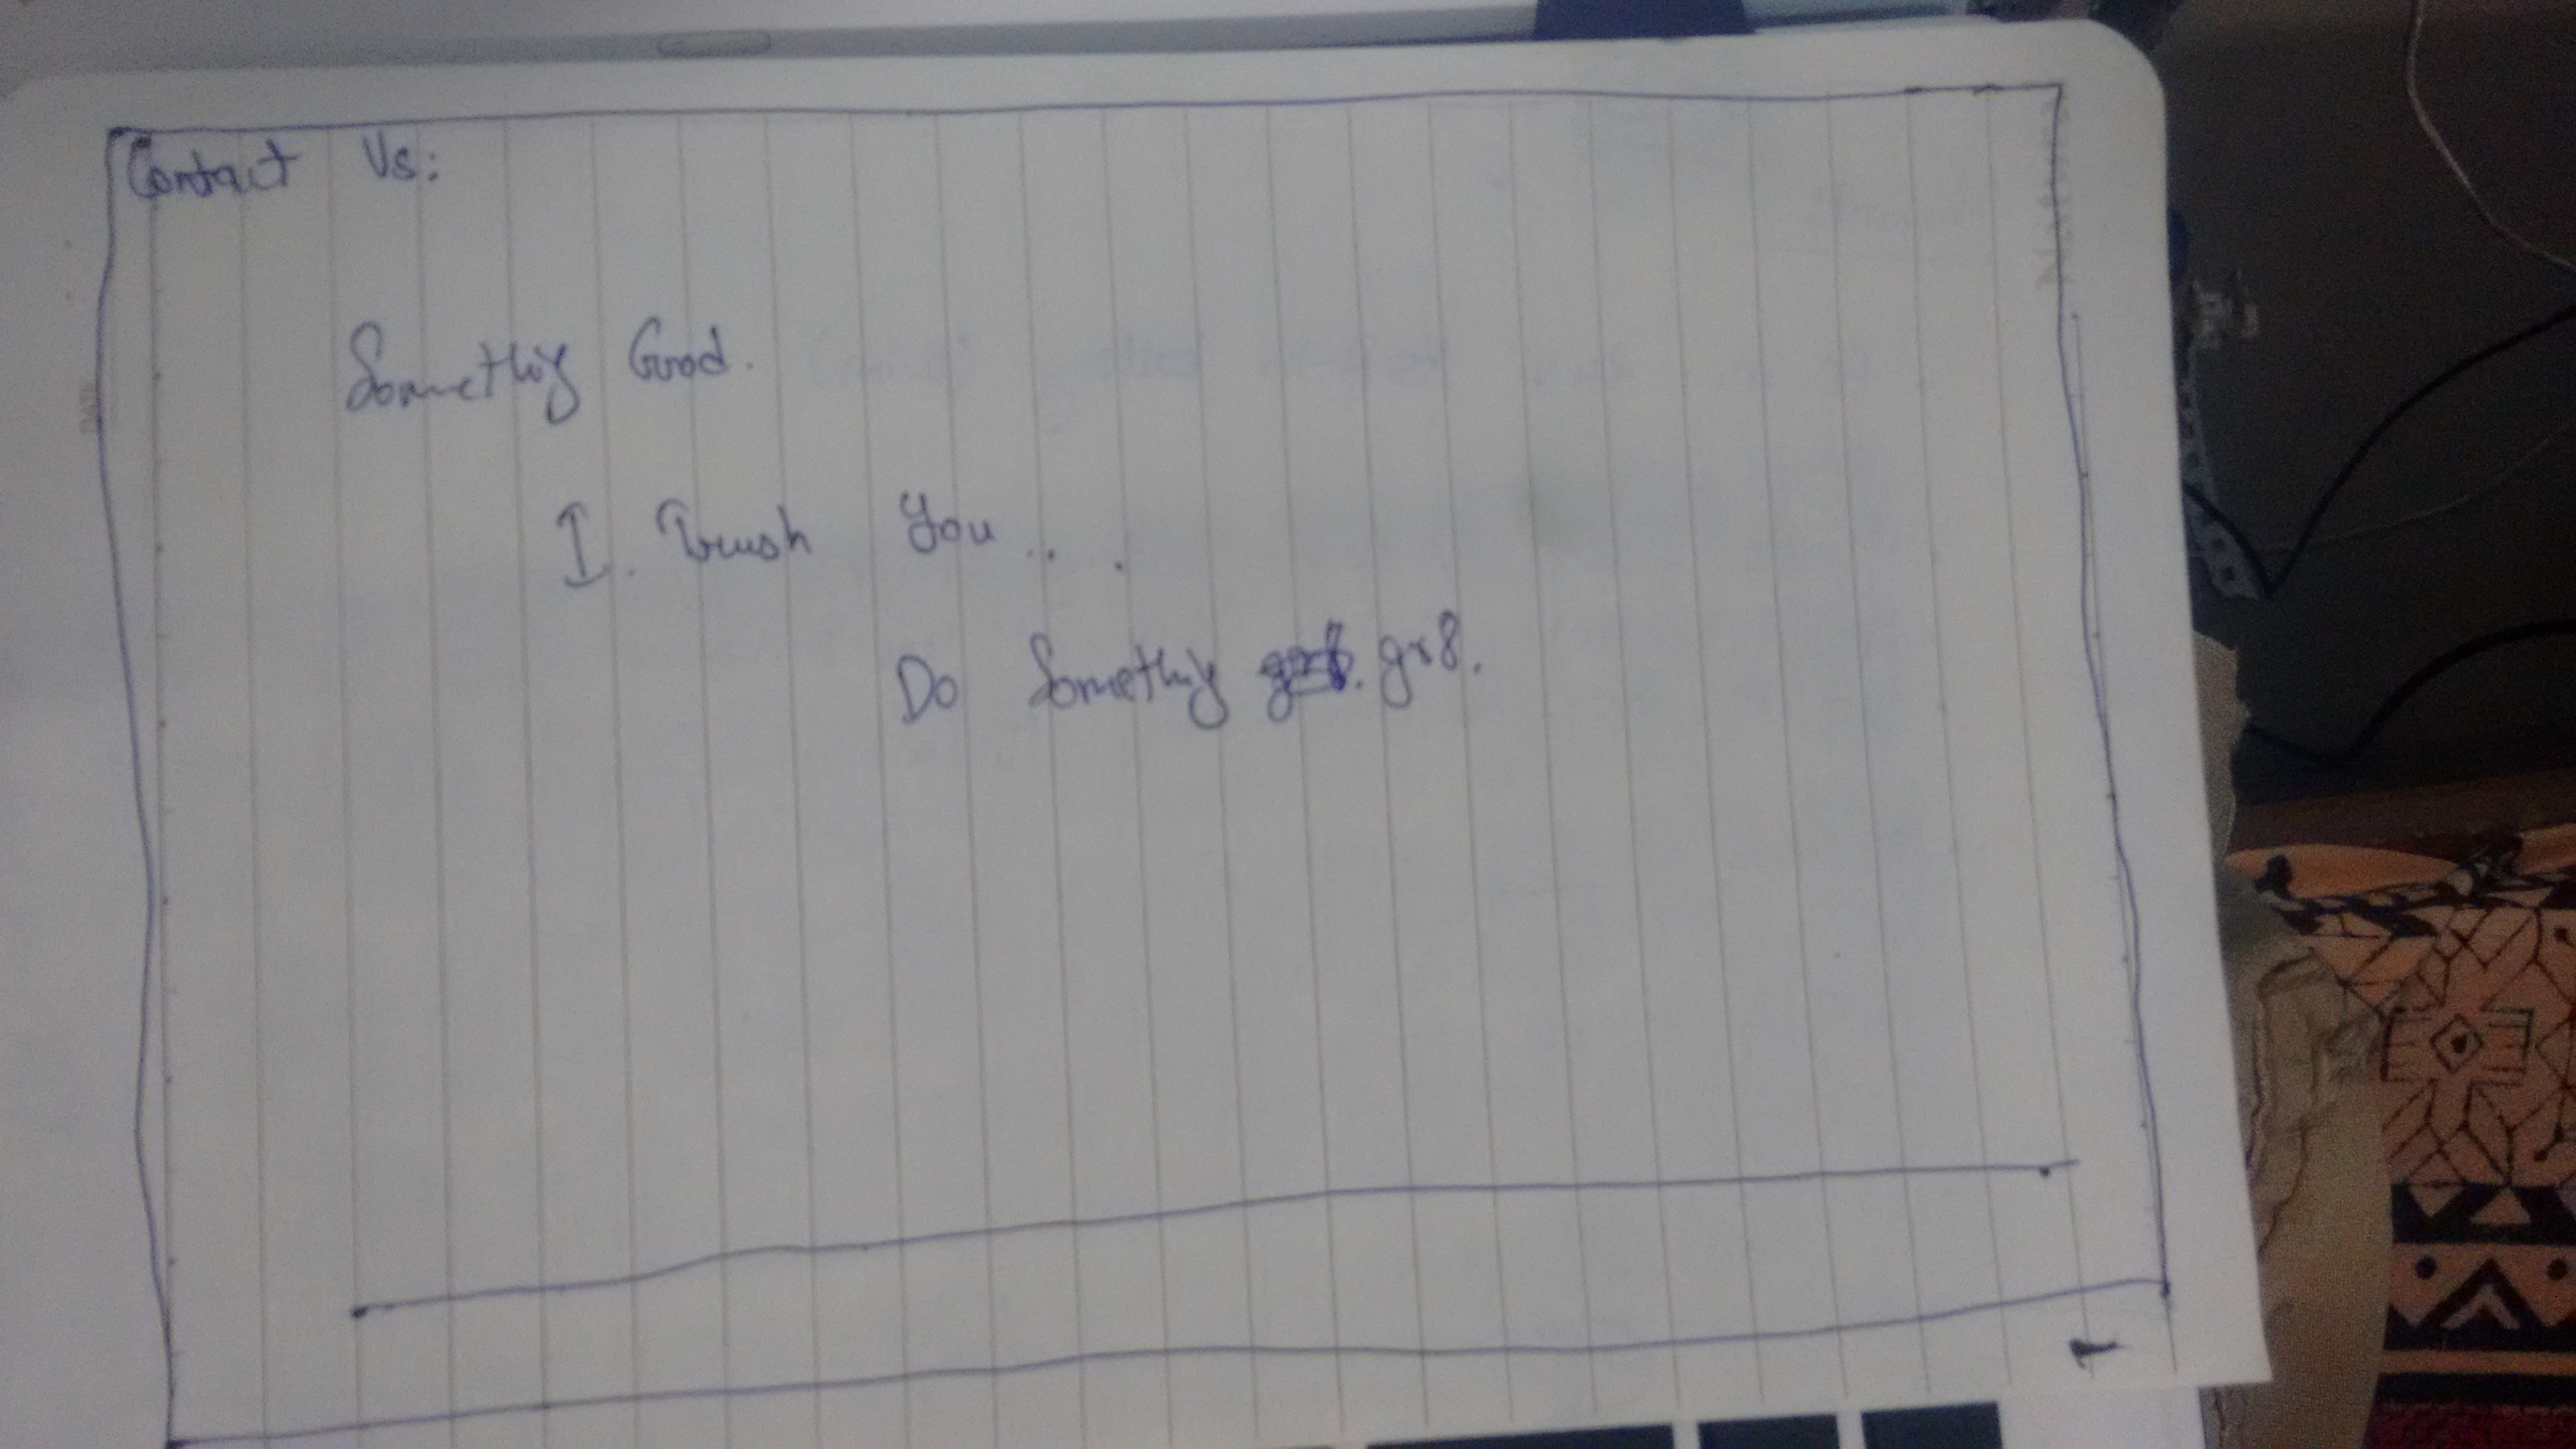 Contact Us:
Something Good.
I. Trush You...
Do Something gr8.